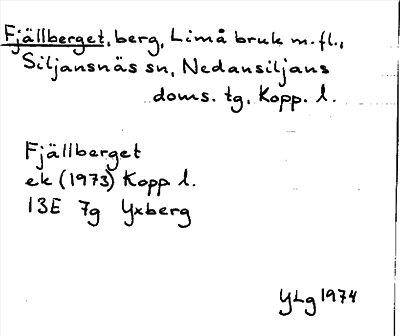 Fjällberget, berg, Limå bruk m.fl.,
Siljansnäs sn, Nedansiljans
doms. tg, Kopp. l.
Fjällberget
ek (1973) Kopp l.
13E 7g Yxberg
YLg 1974